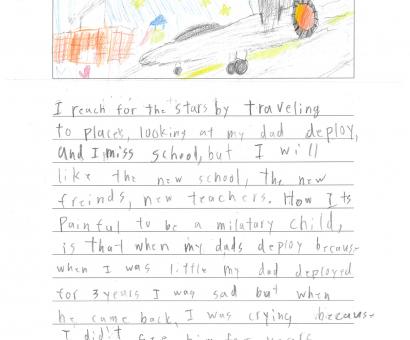 I reach for the stars by traveling
to places, looking at my dad deploy,
and I miss school, but I will
like the new school, the new
freinds, new teachers. How Its
Painful to be a milatary child,
is that when my dads deploy becaus-
when I was little my dad deployed
for 3 years I was sad but when
he came back, I was crying becaus-
I did!t see him for